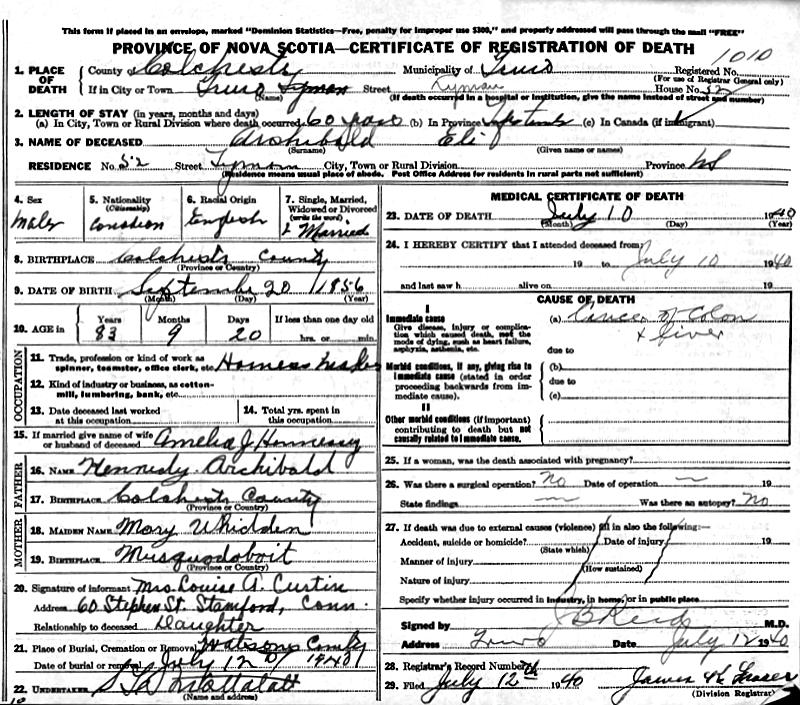 This form if placed in an envelope, marked "Dominion Statistics—Free, penalty for improper use $300," and properly addressed will pass through the mail "FREE"
PROVINCE OF NOVA SCOTIA—CERTIFICATE OF REGISTRATION OF DEATH
1010
1. PLACE OF DEATH
County Colchester Municipality of Truro Registered No.
(For use of Registrar General only)
If in City or Town Truro Lyman Street Lyman House No. 52
(Name) (If death occurred in a hospital or institution, give the name instead of street and number)
2. LENGTH OF STAY (in years, months and days)
(a) In City, Town or Rural Division where death occurred 60 years (b) In Province (c) In Canada (if immigrant)
3. NAME OF DECEASED Archibald Eli
(Surname) (Given name or names)
RESIDENCE No. 52 Street Lyman City, Town or Rural Division Province NS
(Residence means usual place of abode. Post Office Address for residents in rural parts not sufficient)
4. Sex
Male
5. Nationality
(Citizenship)
Canadian
6. Racial Origin
English
7. Single, Married, Widowed or Divorced
(write the word)
Married
8. BIRTHPLACE Colchester County
(Province or Country)
9. DATE OF BIRTH September 20 1856
(Month) (Day) (Year)
10. AGE in
Years Months Days If less than one day old
83 9 20 hrs. or min.
OCCUPATION
11. Trade, profession or kind of work as spinner, teamster, office clerk, etc. Harness Maker
12. Kind of industry or business, as cotton-mill, lumbering, bank, etc.
13. Date deceased last worked at this occupation
14. Total yrs. spent in this occupation
15. If married give name of wife or husband of deceased Amelia J. Hennessy
FATHER
16. NAME Kennedy Archibald
17. BIRTHPLACE Colchester County
(Province or Country)
MOTHER
18. MAIDEN NAME Mary Whidden
19. BIRTHPLACE Musquodoboit
(Province or Country)
20. Signature of informant Mrs. Louise A. Custin
Address 60 Stephen St. Stamford, Conn.
Relationship to deceased Daughter
21. Place of Burial, Cremation or Removal
Date of burial or removal July 12 1940
22. UNDERTAKER
(Name and address)
MEDICAL CERTIFICATE OF DEATH
23. DATE OF DEATH July 10 1940
(Month) (Day) (Year)
24. I HEREBY CERTIFY that I attended deceased from
19 to July 10 1940
and last saw h alive on 19
CAUSE OF DEATH
I
Immediate cause
Give disease, injury or complication which caused death, not the mode of dying, such as heart failure, asphyxia, asthenia, etc.
(a) Cancer of Colon
& liver
due to
Morbid conditions, if any, giving rise to immediate cause (stated in order proceeding backwards from immediate cause)
(b)
due to
(c)
II
Other morbid conditions (if important) contributing to death but not causally related to immediate cause
25. If a woman, was the death associated with pregnancy?
26. Was there a surgical operation? No Date of operation 19
State findings Was there an autopsy? No
27. If death was due to external causes (violence) fill in also the following:—
Accident, suicide or homicide? Date of injury 19
(State which)
Manner of injury
(How sustained)
Nature of injury
Specify whether injury occurred in industry, in home, or in public place
Signed by J B Reid M.D.
Address Truro Date July 12 1940
28. Registrar's Record Number
29. Filed July 12th 1940 James
(Division Registrar)